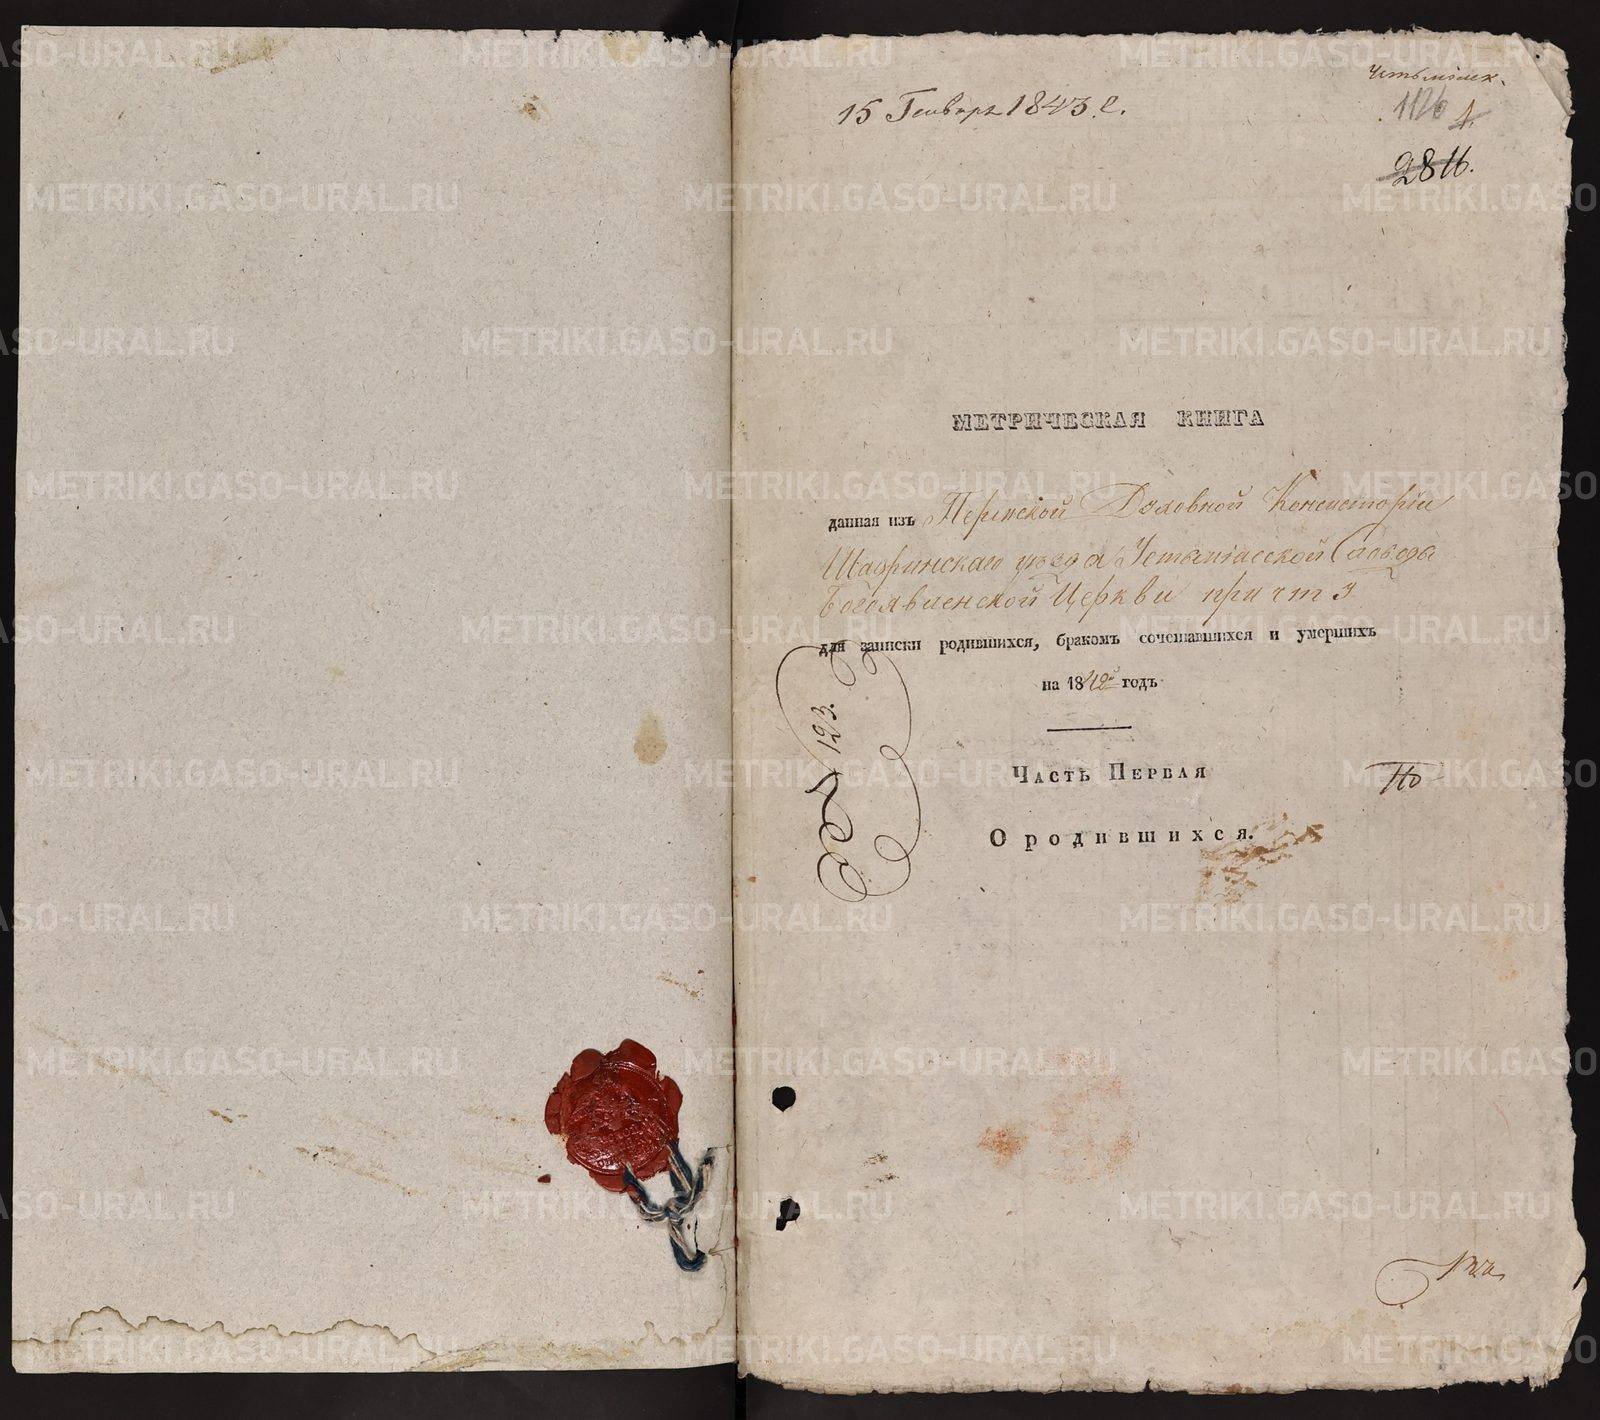 Усть мiяск.
15 Генваря 1843. г.
1126 1.
2816.
МЕТРИЧЕСКАЯ КНИГА
данная изъ Пермской Духовной Консисторіи
Шадринскаго уѣзда Устьміасской Слободы
Богоявленской Церкви причту
для записки родившихся, бракомъ сочетавшихся и умершихъ
на 1842й годъ
123.
ЧАСТЬ ПЕРВАЯ
О родившихся.
METRIKI.GASO-URAL.RU